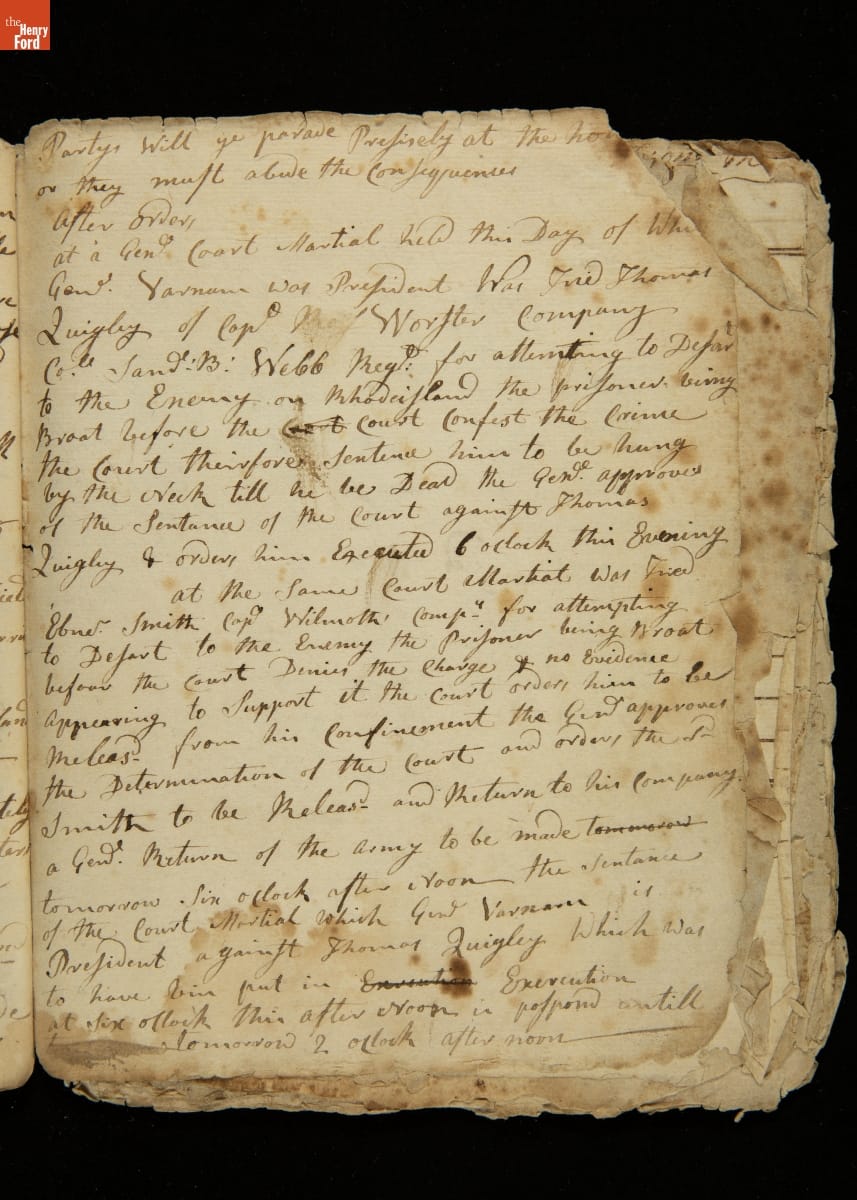 the
Henry
Ford
Partys Will ye parade Presisely at the
or they must abide the Consequenses
After orders
at a Genl. Court Martial held this Day of
Genl. Varnam was President Was Tried Thomas
Quigley of Capt Worster Company
Coll. Saml. B. Webb Regt. for attemting to Desar
to the Enemy on Rhodeisland the prisoner being
Broat before the Court Court Confest the Crime
the Court theirfore Sentence him to be hung
by the Neck till he be Dead the Genl. approves
of the Sentance of the Court against Thomas
Quigley & orders him Executed 6 oclock this Evening
at the Same Court Martial was Tried
Ebnr. Smith Capt Wilmoths Compy for attempting
to Desart to the Enemy the Prisoner being Broat
befour the Court Denies the Charge & no Evidence
Appearing to Support it the Court orders him to be
Releasd from his Confinement the Genl approves
the Determination of the Court and orders the Sd
Smith to be Releasd and Return to his Company
a Genl. Return of the Army to be made tomorow
tomorrow Six oclock after Noon the Sentance
of the Court Martial which Genl Varnam is
President against Thomas Quigley Which was
to have bin put in Execution
at Six oclock this after Noon is pospond untill
tomorrow 2 oclock after noon